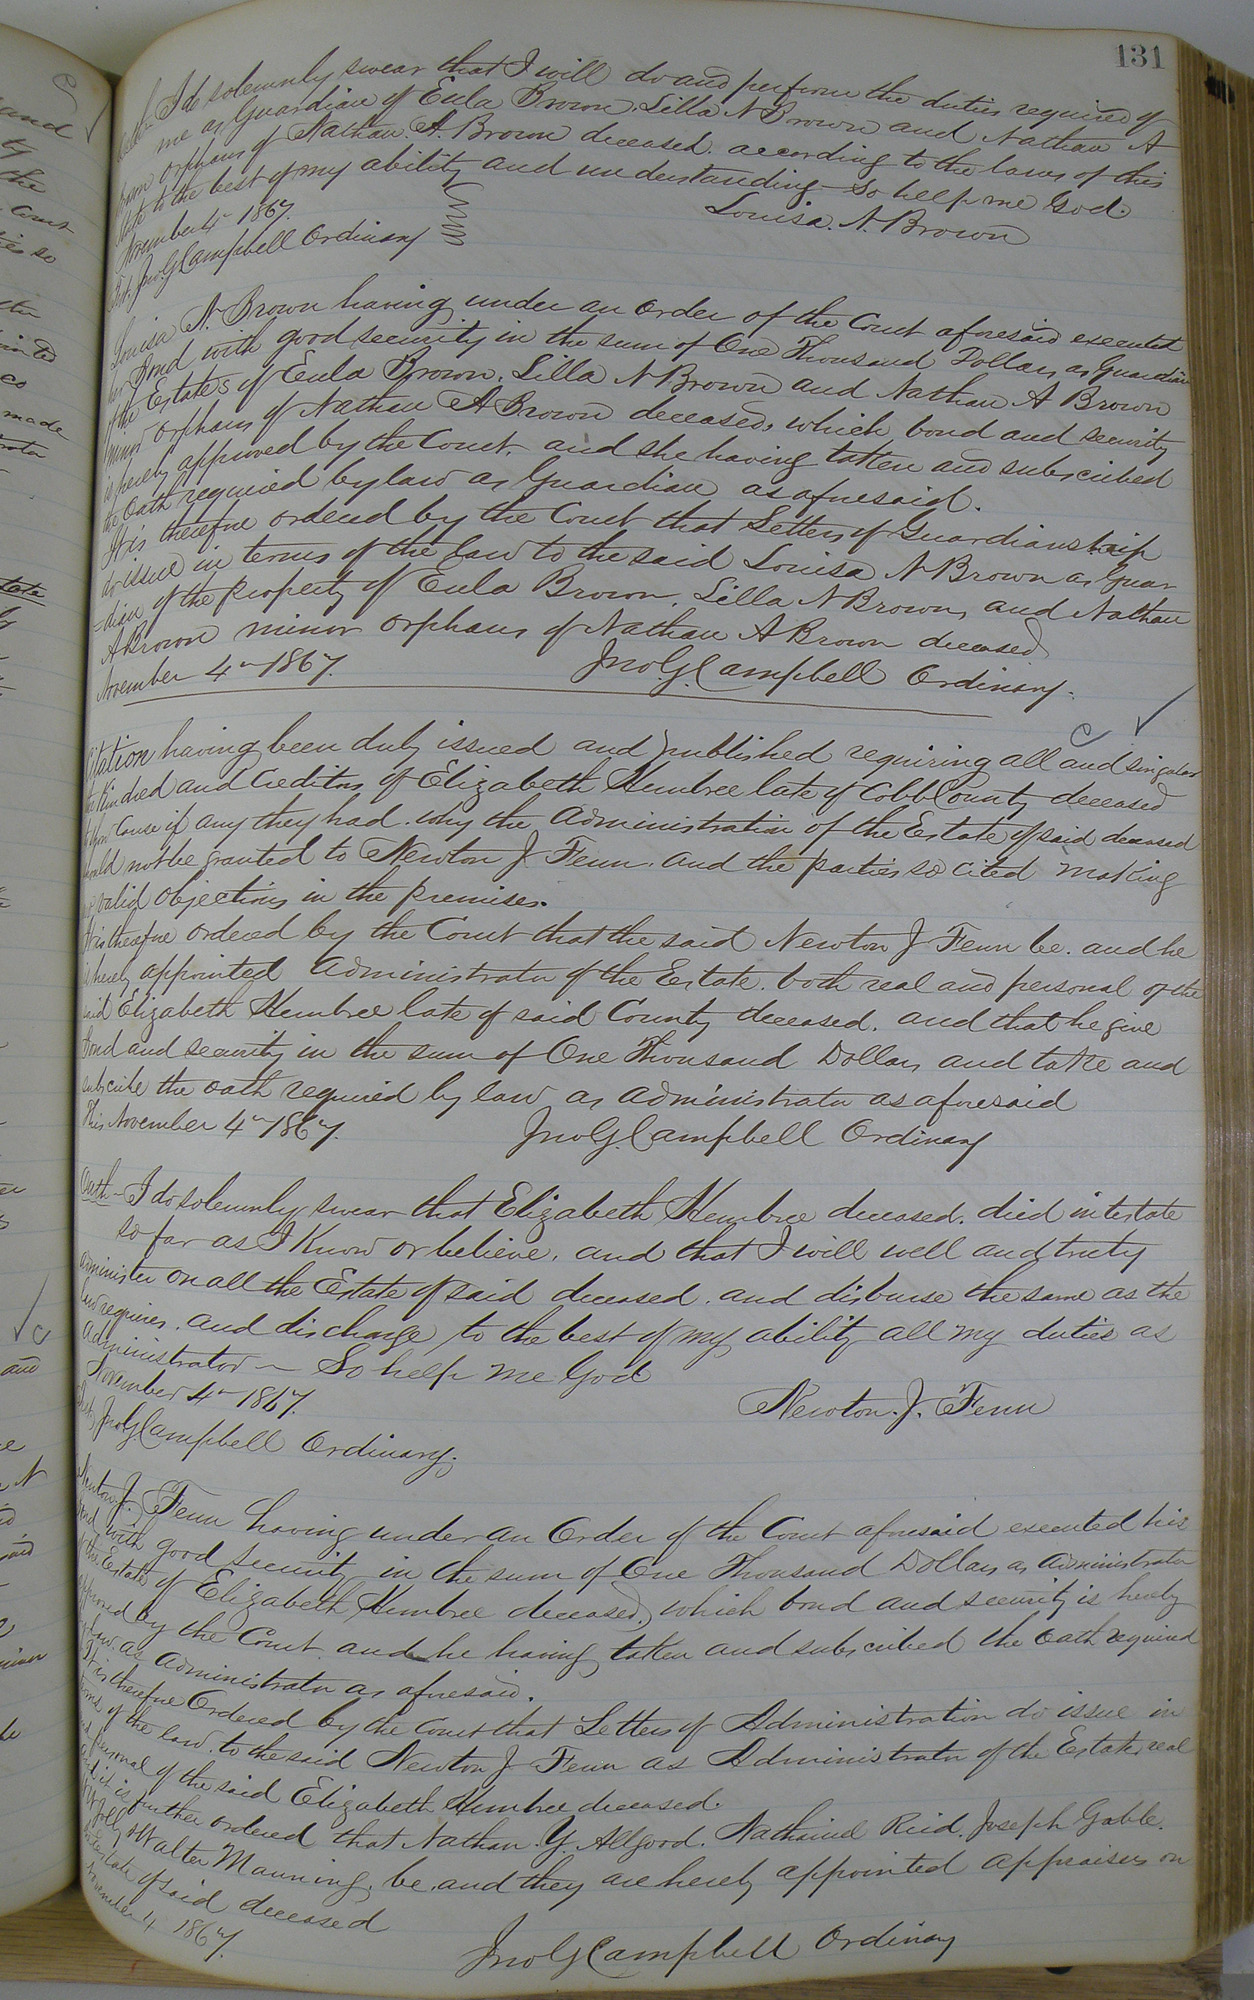 131
Oath I do solemnly swear that I will do and perform the duties required of
me as Guardian of Eula Brown, Lilla N Brown and Nathan A
Brown orphans of Nathan A. Brown deceased. according to the laws of this
State to the best of my ability and understanding — So help me God.
November 4th 1867.
Louisa. N. Brown
Test. Jno. G. Campbell Ordinary
Louisa N. Brown having under an order of the Court aforesaid executed
her Bond with good security in the sum of One Thousand Dollars as Guardian
of the Estates of Eula Brown, Lilla N Brown and Nathan A Brown
minor orphans of Nathan A Brown deceased, which bond and security
is hereby approved by the Court. and she having taken and subscribed
the Oath required by law as Guardian as aforesaid.
It is therefore ordered by the Court that Letters of Guardianship
do issue in terms of the law to the said Louisa N Brown as Guar
=dian of the property of Eula Brown, Lilla N Brown, and Nathan
A Brown minor orphans of Nathan A Brown deceased
November 4th 1867.
Jno G. Campbell Ordinary.
Citation having been duly issued and published requiring all and singular
the Kindred and Creditors of Elizabeth Hembree late of Cobb County deceased
to show Cause if any they had. why the Administration of the Estate of said deceased
should not be granted to Newton J Fenn. and the parties so cited making
no valid objections in the premises.
It is therefore ordered by the Court that the said Newton J Fenn be. and he
is hereby appointed Administrator of the Estate. both real and personal of the
said Elizabeth Hembree late of said County deceased. and that he give
bond and security in the sum of One Thousand Dollars and take and
subscribe the oath required by law as administrator as aforesaid
This November 4th 1867.
Jno G. Campbell Ordinary
Oath — I do solemnly swear that Elizabeth Hembree deceased. died intestate
so far as I Know or believe. and that I will well and truly
administer on all the Estate of said deceased. and disburse the same as the
law requires. and discharge to the best of my ability all my duties as
Administrator — So help me God
November 4th 1867.
Newton. J. Fenn
Test Jno G Campbell Ordinary.
Newton J. Fenn having under an Order of the Court aforesaid executed his
bond with good security in the sum of One Thousand Dollars as Administrator
of the Estate of Elizabeth Hembree deceased, which bond and security is hereby
approved by the Court and he having taken and subscribed the oath required
by law as Administrator as aforesaid.
It is therefore Ordered by the Court that Letters of Administration do issue in
terms of the law. to the said Newton J Fenn as Administrator of the Estate real
and personal of the said Elizabeth Hembree deceased.
And it is further ordered that Nathan. Y. Allgood. Nathaniel Reid. Joseph Gable.
Jolly Walter Manning, be. and they are hereby appointed appraisers on
the Estate of said deceased
November 4 1867.
Jno G Campbell Ordinary